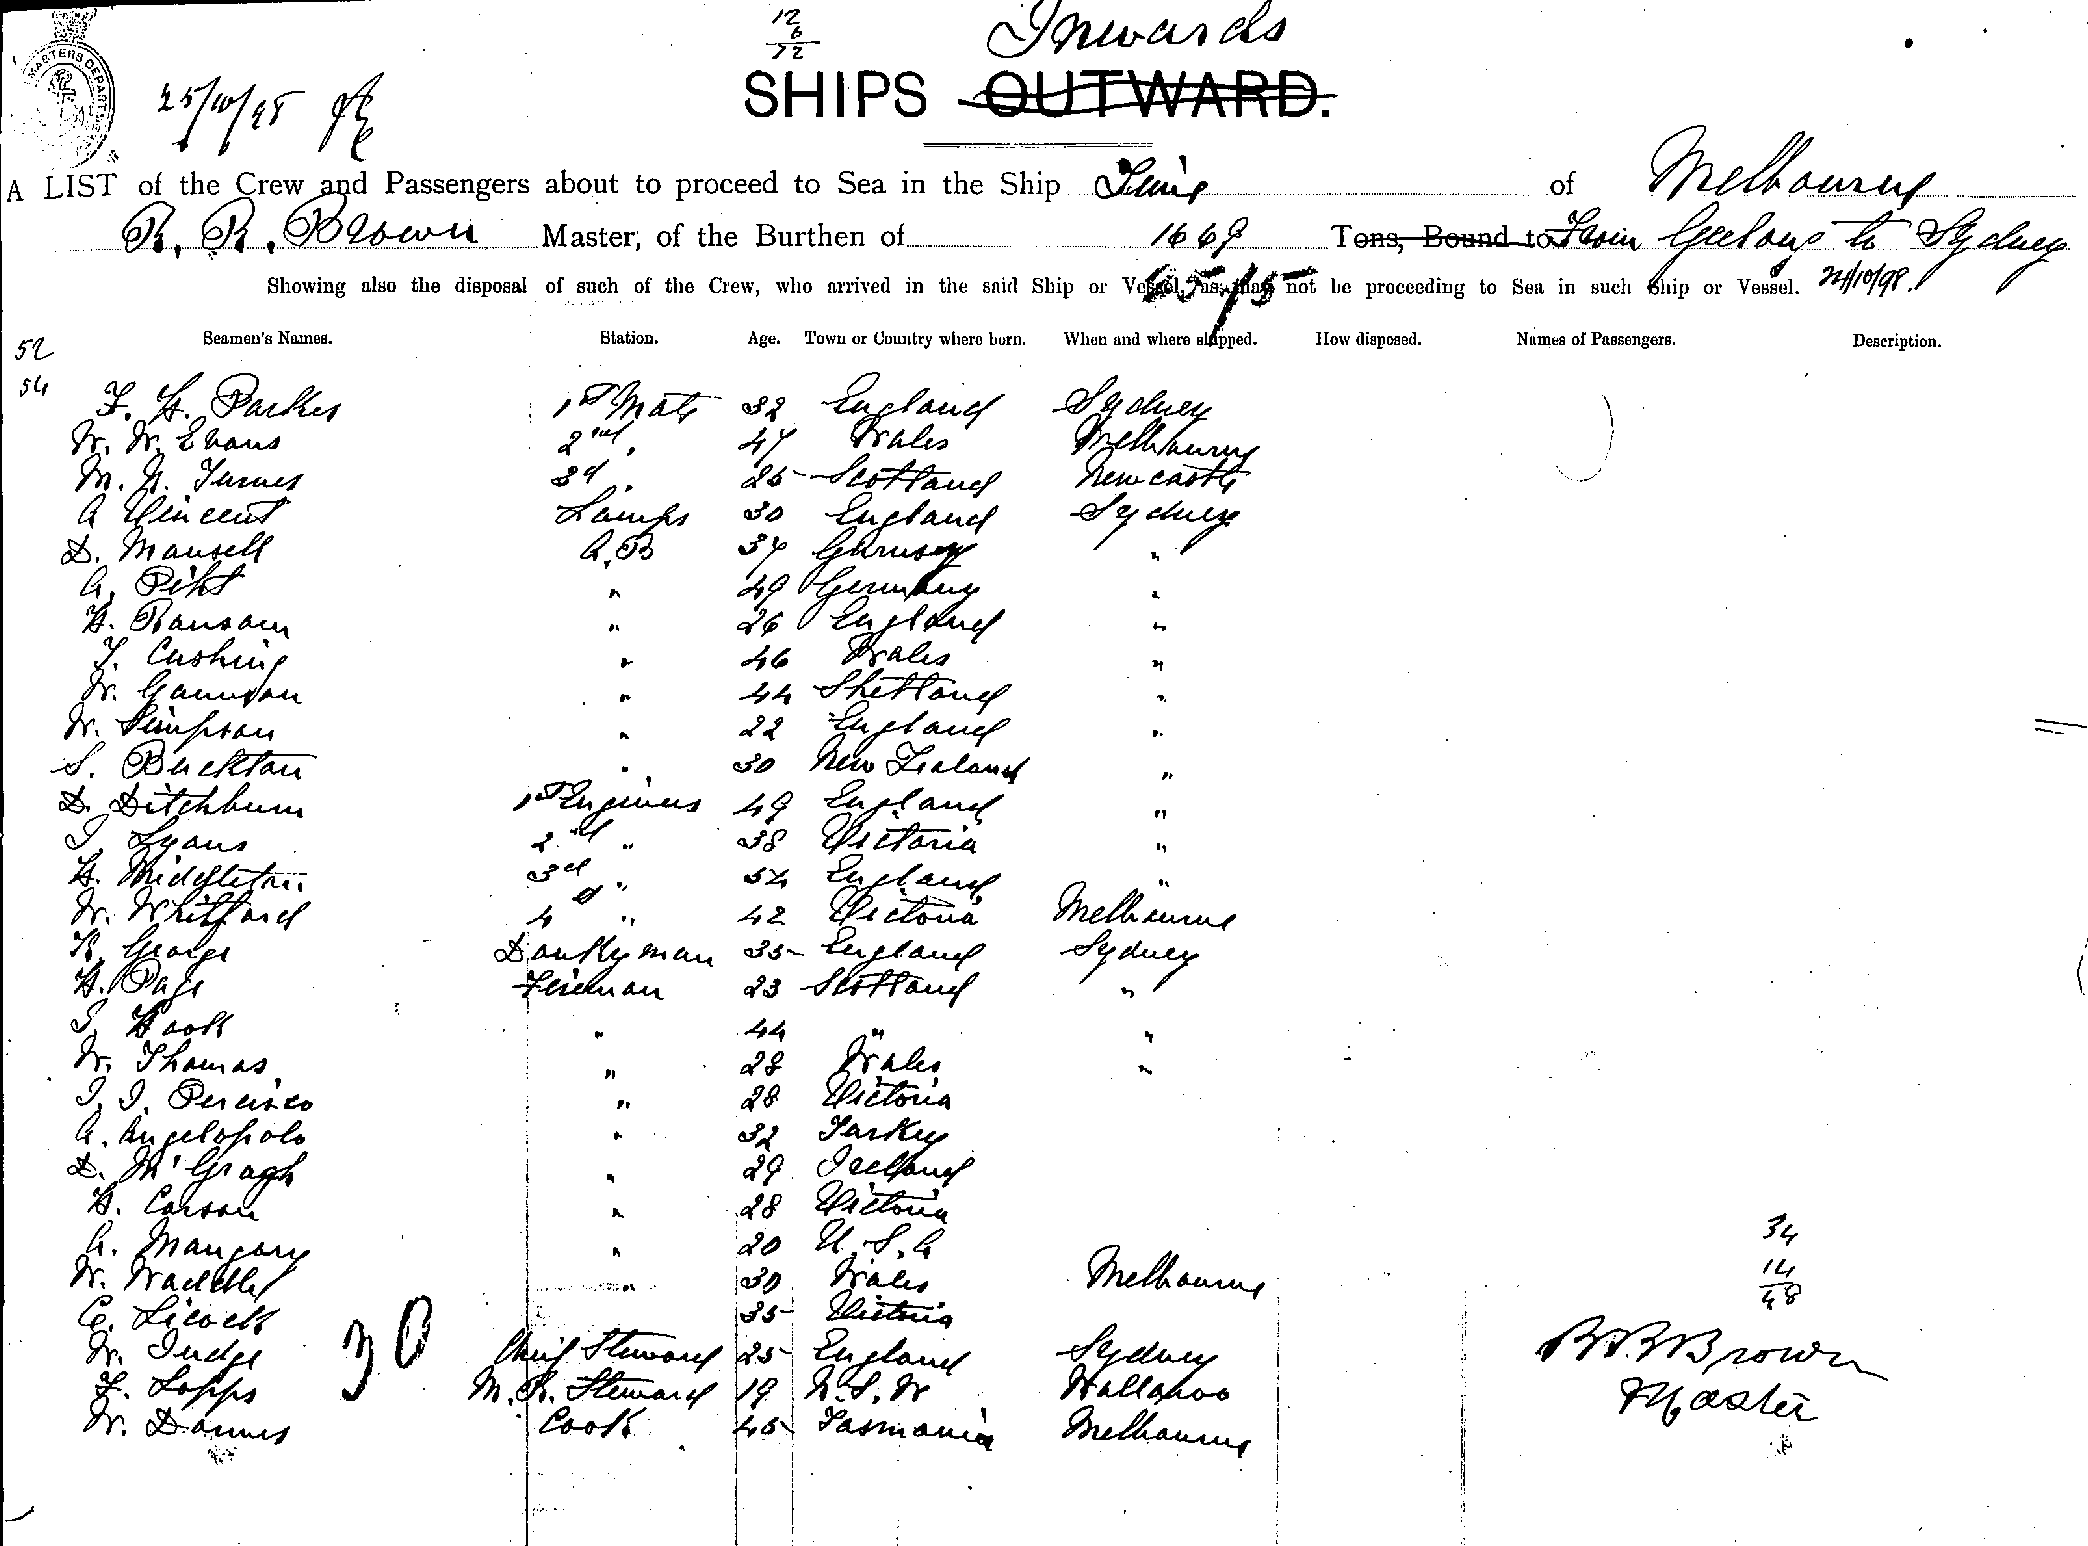 12
6
12
Inwards
SHIPS OUTWARD.
MASTERS DEPART
25/10/98
A LIST of the Crew and Passengers about to proceed to Sea in the Ship of Melbourne
R. R. Brown Master, of the Burthen of 1669 Tons, Bound to From Geelong to Sydney
Showing also the disposal of such of the Crew, who arrived in the said Ship or Vessel, as may not be proceeding to Sea in such Ship or Vessel. 24/10/98.
Seamen's Names. Station. Age. Town or Country where born. When and where shipped. How disposed. Names of Passengers. Description.
52
54
F. H. Parkes 1st Mate 32 England Sydney
W. W. Evans 2nd " 47 Wales Melbourne
M. N. Turner 3d " 25 Scotland Newcastle
A Vincent Lamps 30 England Sydney
D. Mansell A.B 37 Guernsey "
A. " 49 Germany "
H. Ransom " 26 England "
J. Cushing " 46 Wales "
W. " 44 Shetland "
W. Simpson " 22 England "
S. Buckton " 30 New Zealand "
D. Ditchburn 1st Engineer 49 England "
J. Lyons 2nd " 38 Victoria "
H. Middleton 3rd " 54 England "
W. Whitford 4 " 42 Victoria Melbourne
R. George Donkeyman 35 England Sydney
H. Page Fireman 23 Scotland "
J. Hook " 44 " "
W. Thomas " 28 Wales "
J. J. " 28 Victoria
A. Angelopolo " 32 Turkey
D. McGragh " 29 Ireland
H. Carson " 28 Victoria
A. " 20 U.S.A
W. Waddell " 30 Wales Melbourne
C. 35 Victoria
W. Judge Chief Steward 25 England Sydney
F. Lopps M. R. Steward 19 N.S.W Wallaroo
W. Cook 45 Tasmania Melbourne
30
34
14
48
R. R. Brown
Master